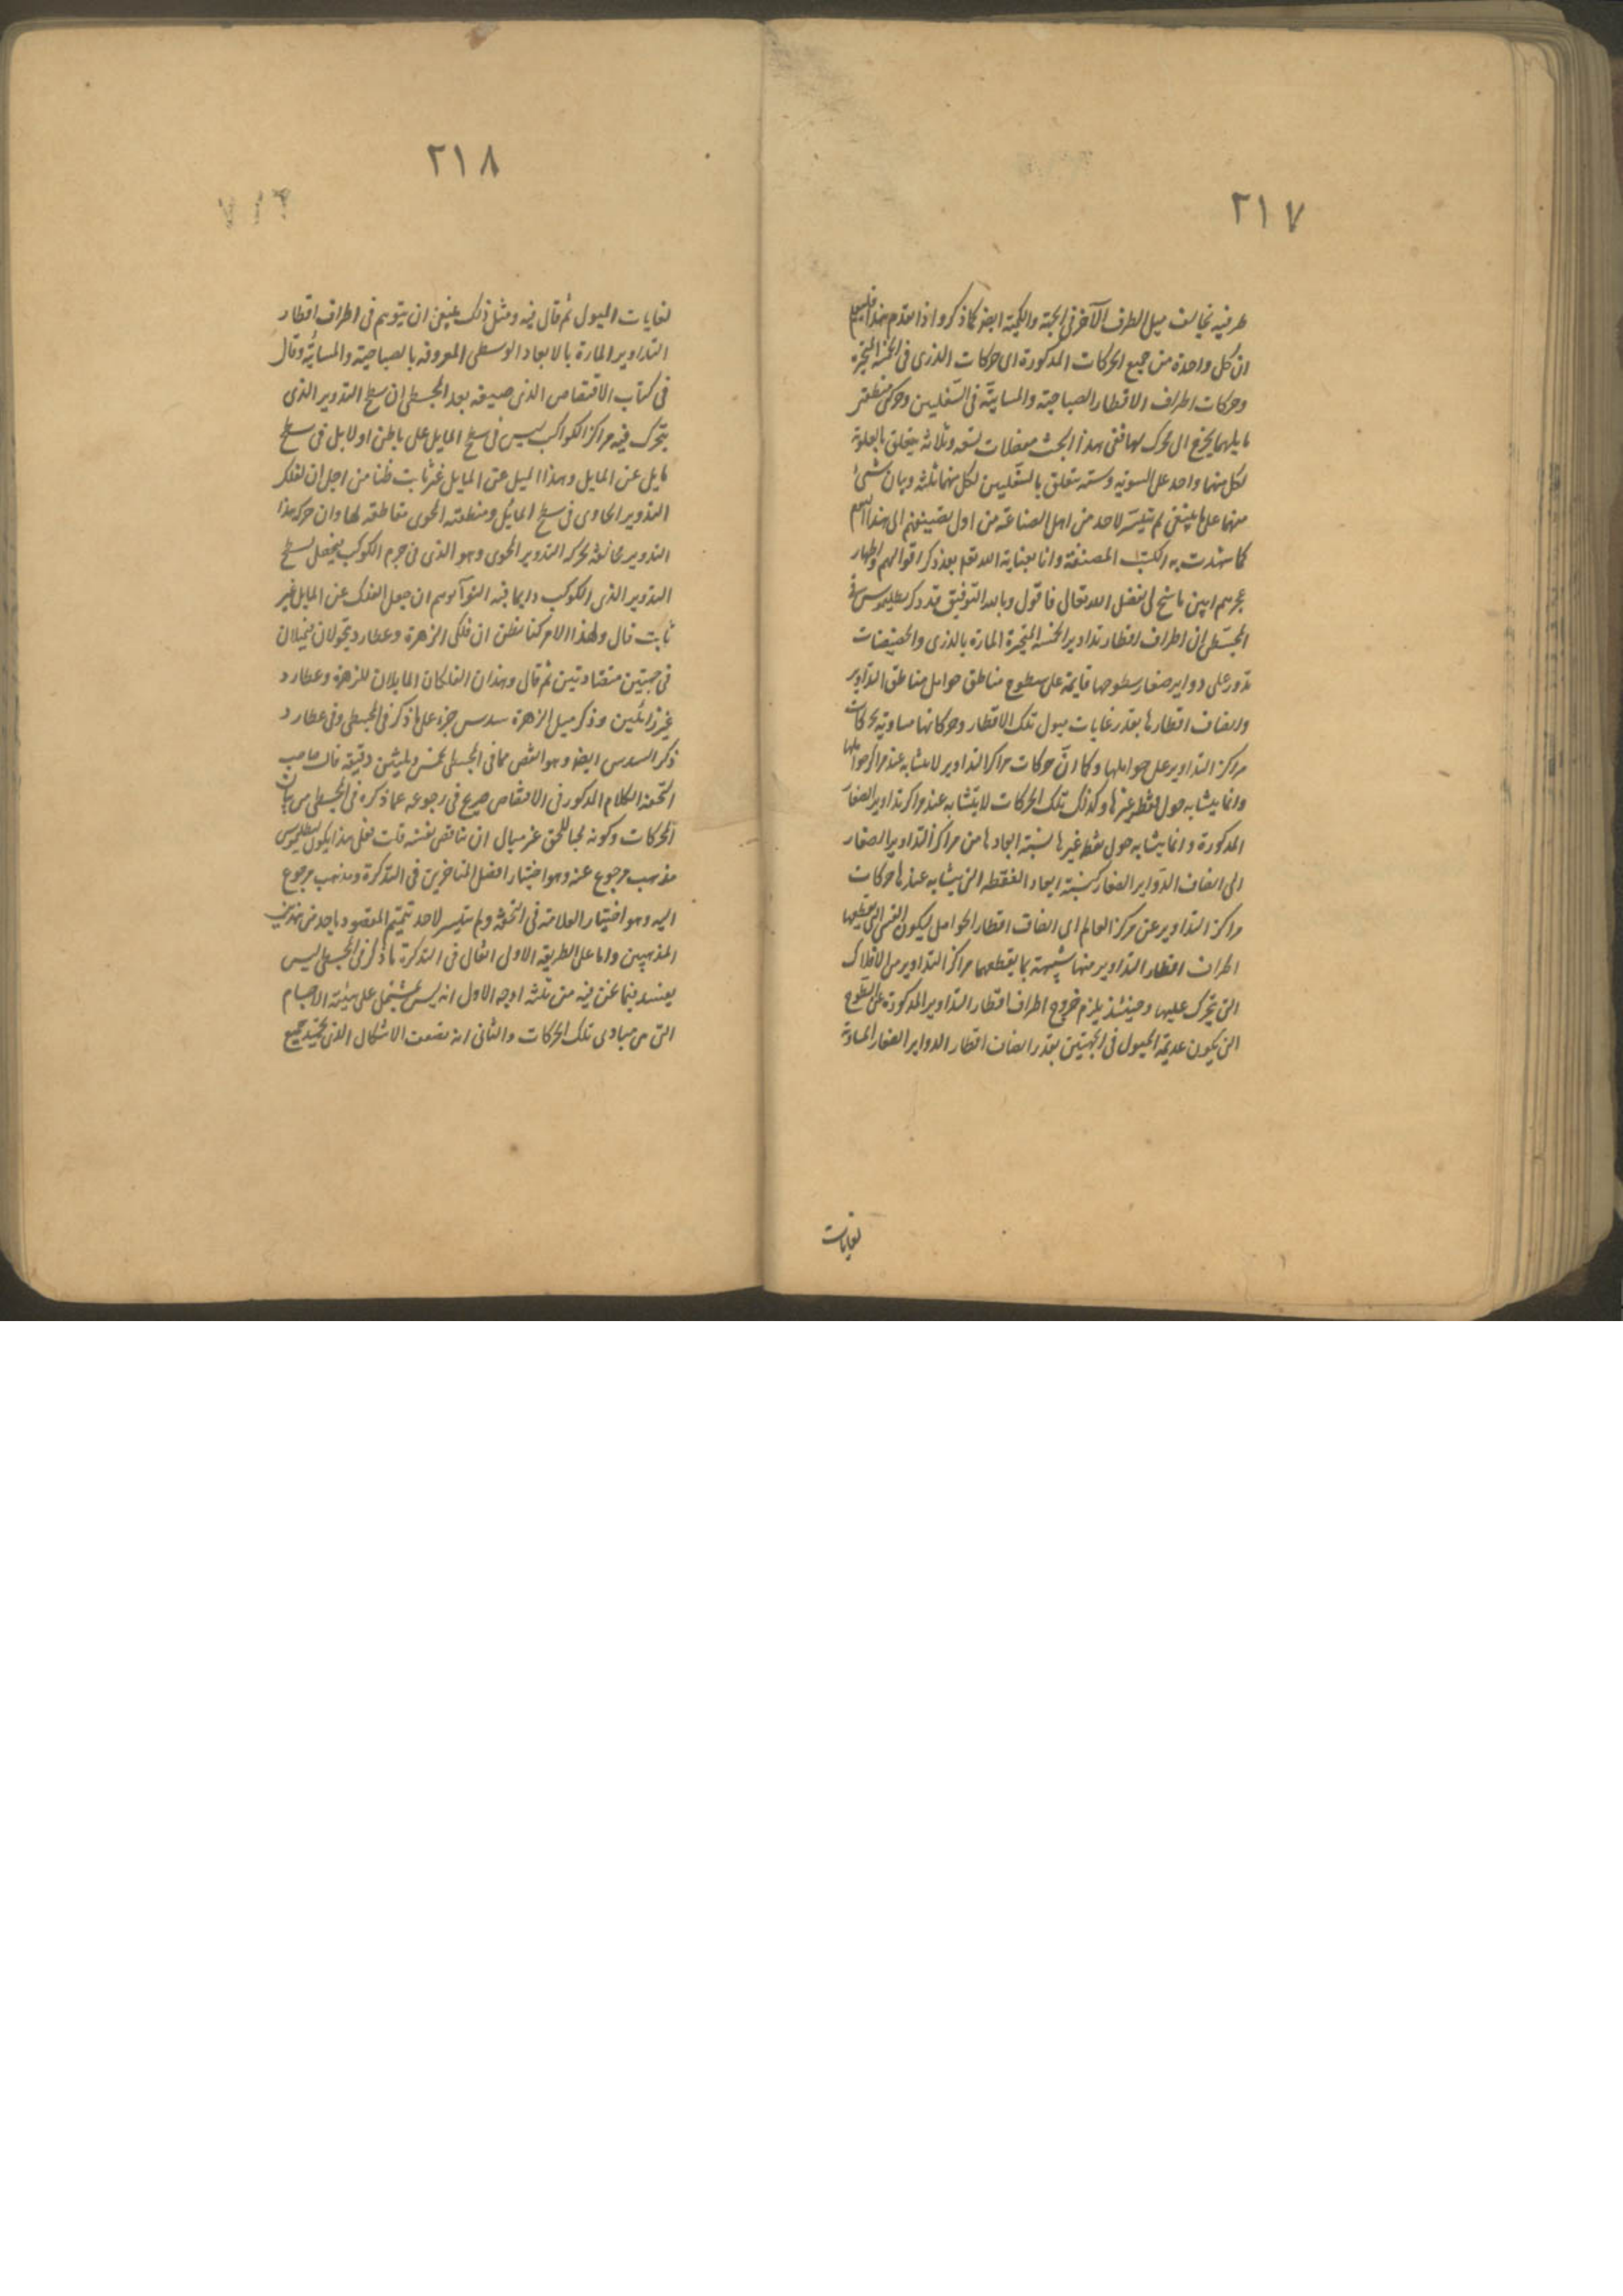 ٢١٧
طرفيه يخالف ميل الطرف الآخر في الجهة والكمية ايضا كما ذكروا اذا تقدم هذا فليعلم
ان كل واحدة من جميع الحركات المذكورة اى حركات الذرى في الخمسة المتحيرة
وحركات اطراف الاقطار الصباحية والمسائية في السفليين وحركتي منطقتي
مايليهما يحتاج الى محرك لها ففي هذا البحث معضلات تسعة وثلاثة يتعلق بالعلوية
لكل منها واحد على السوية وستة يتعلق بالسفليين لكل منهما ثلثة وبيان شئ
منها على ما ينبغي لم يتيسر لاحد من اهل الصناعة من اول تصنيفهم الى هذا اليوم
كما شهدت به الكتب المصنفة وانا بعناية الله تعلم بعد ذكر اقوالهم واظهار
عجزهم ابين ما سنح لى بفضل الله تعالى فاقول وبالله التوفيق قد ذكر بطليموس في
المجسطى ان اطراف اقطار تداوير الخمسة المتحيرة المارة بالذرى والحضيضات
تدور على دواير صغار سطوحها قايمة على سطوح مناطق حوامل مناطق التداوير
وانصاف اقطارها بقدر غايات ميول تلك الاقطار وحركاتها مساوية لحركات
مراكز التداوير على حواملها وكما ان حركات مراكز التداوير لا يتشابه عند مراكز حواملها
وانما يتشابه حول نقط غيرها وكذلك تلك الحركات لا يتشابه عند مراكز تداوير الصغار
المذكورة وانما يتشابه حول نقط غيرها نسبة ابعادها من مراكز التداوير الصغار
الى انصاف الدواير الصغار كنسبة ابعاد النقطة التى يتشابه عندها حركات
مراكز التداوير عن مركز العالم اى انصاف اقطار الحوامل ليكون القسى التى يقطعها
اطراف اقطار التداوير منها شبيهة بما يقطعها مراكز التداوير من الافلاك
التى يتحرك عليها وحينئذ يلزم خروج اطراف اقطار التداوير المذكورة على السطوح
التى يكون عديمة الميول في الجهتين بقدر انصاف اقطار الدواير الصغار المساوية
لغايات
٢١٨
لغايات الميول ثم قال فيه ومثل ذلك ينبغي ان يتوهم في اطراف اقطار
التداوير المارة بالابعاد الوسطى المعروفة بالصباحية والمسائية وقال
في كتاب الاقتصاص الذى صنفه بعد المجسطى ان سطح التدوير الذى
يتحرك فيه مراكز الكواكب ليس في سطح المايل على ما ظن اولا بل في سطح
مايل عن المايل وهذا الميل عن المايل غير ثابت ظنا من اجل ان لفلك
التدوير الحاوى في سطح المايل ومنطقته المحوى مقاطعة لها وان حركة هذا
التدوير مخالفة لحركة التدوير المحوى وهو الذى في جرم الكوكب يجعل سطح
التدوير الذى الكوكب دايما فيه التوآ يوهم ان جعل الفلك عن المايل غير
ثابت قال ولهذا الامر كنا نظن ان فلكى الزهرة وعطارد يتحولان يميلان
في جهتين متضادتين ثم قال وهذان الفلكان المايلان للزهرة وعطارد
غير زائلين وذكر ميل الزهرة سدس جزء على ما ذكر في المجسطى وفي عطارد
ذكر السدس ايضا وهو انقص مما في المجسطى بخمس وثلثين دقيقة قال صاحب
التحفة الكلام المذكور في الاقتصاص صريح في رجوعه عما ذكره في المجسطى من بيان
الحركات وكونه محبا للحق غير مبال ان يناقض نفسه قلت فعلى هذا يكون لبطليموس
مذهب مرجوع عنه وهو اختيار افضل المتاخرين في التذكرة ومذهب مرجوع
اليه وهو اختيار العلامة في التحفة ولم يتيسر لاحد تتميم المقصود باحد من هذين
المذهبين واما على الطريقة الاولى فقال في التذكرة ما ذكر في المجسطى ليس
بمفيد فيما نحن فيه من ثلثة اوجه الاول انه ليس بمشتمل على هيئة الاجسام
التى هى مبادى تلك الحركات والثانى انه تضعف الاشكال الذى يجتهد جميع